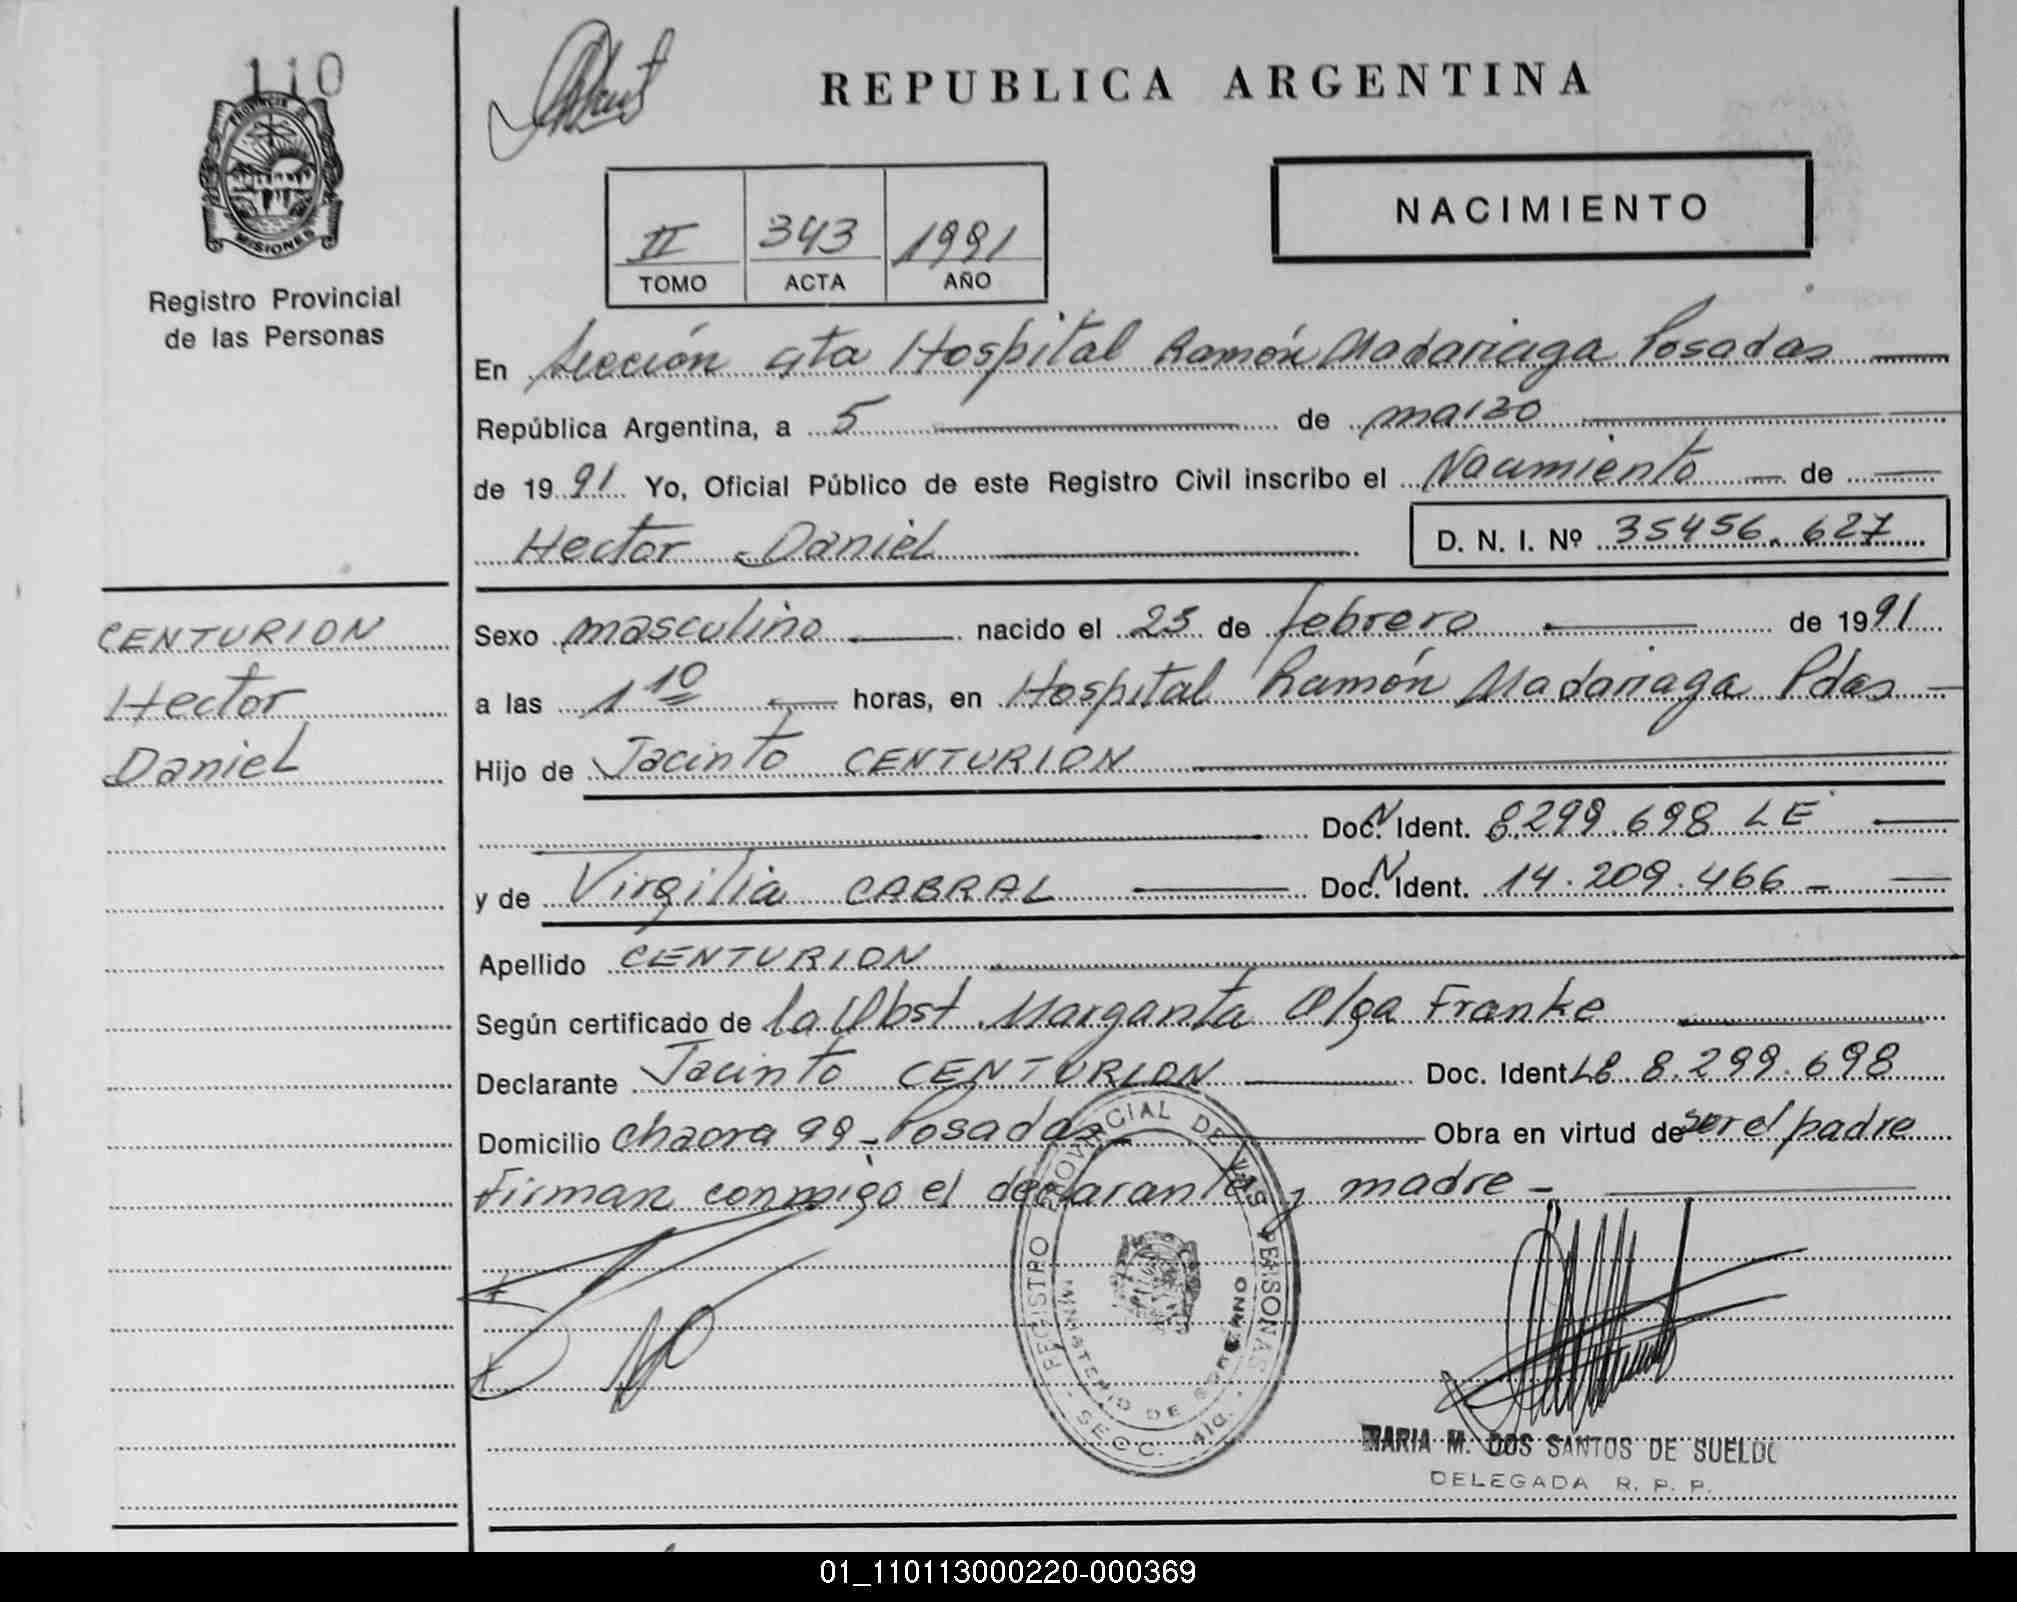 110
PROVINCIA DE
MISIONES
Registro Provincial
de las Personas
REPUBLICA ARGENTINA
II 343 1991
TOMO ACTA AÑO
NACIMIENTO
En Sección 4ta Hospital Ramón Madariaga Posadas
República Argentina, a 5 de marzo
de 1991 Yo, Oficial Público de este Registro Civil inscribo el Nacimiento de
Hector Daniel D. N. I. Nº 35456.627
CENTURION
Hector
Daniel
Sexo masculino nacido el 23 de febrero de 1991
a las 1 10 horas, en Hospital Ramón Madariaga Pdas
Hijo de Jacinto CENTURION
Doc. N Ident. 8.299.698 LE
y de Virgilia CABRAL Doc. N Ident. 14.209.466
Apellido CENTURION
Según certificado de la Obst. Margarita Olga Franke
Declarante Jacinto CENTURION Doc. Ident LE 8.299.698
Domicilio chacra 99 - Posadas - Obra en virtud de ser el padre
Firman conmigo el declarante y madre -
REGISTRO PROVINCIAL DE LAS PERSONAS
MINISTERIO DE GOBIERNO
SECC. 4ta.
MARIA M. DOS SANTOS DE SUELDO
DELEGADA R. P. P.
01_110113000220-000369